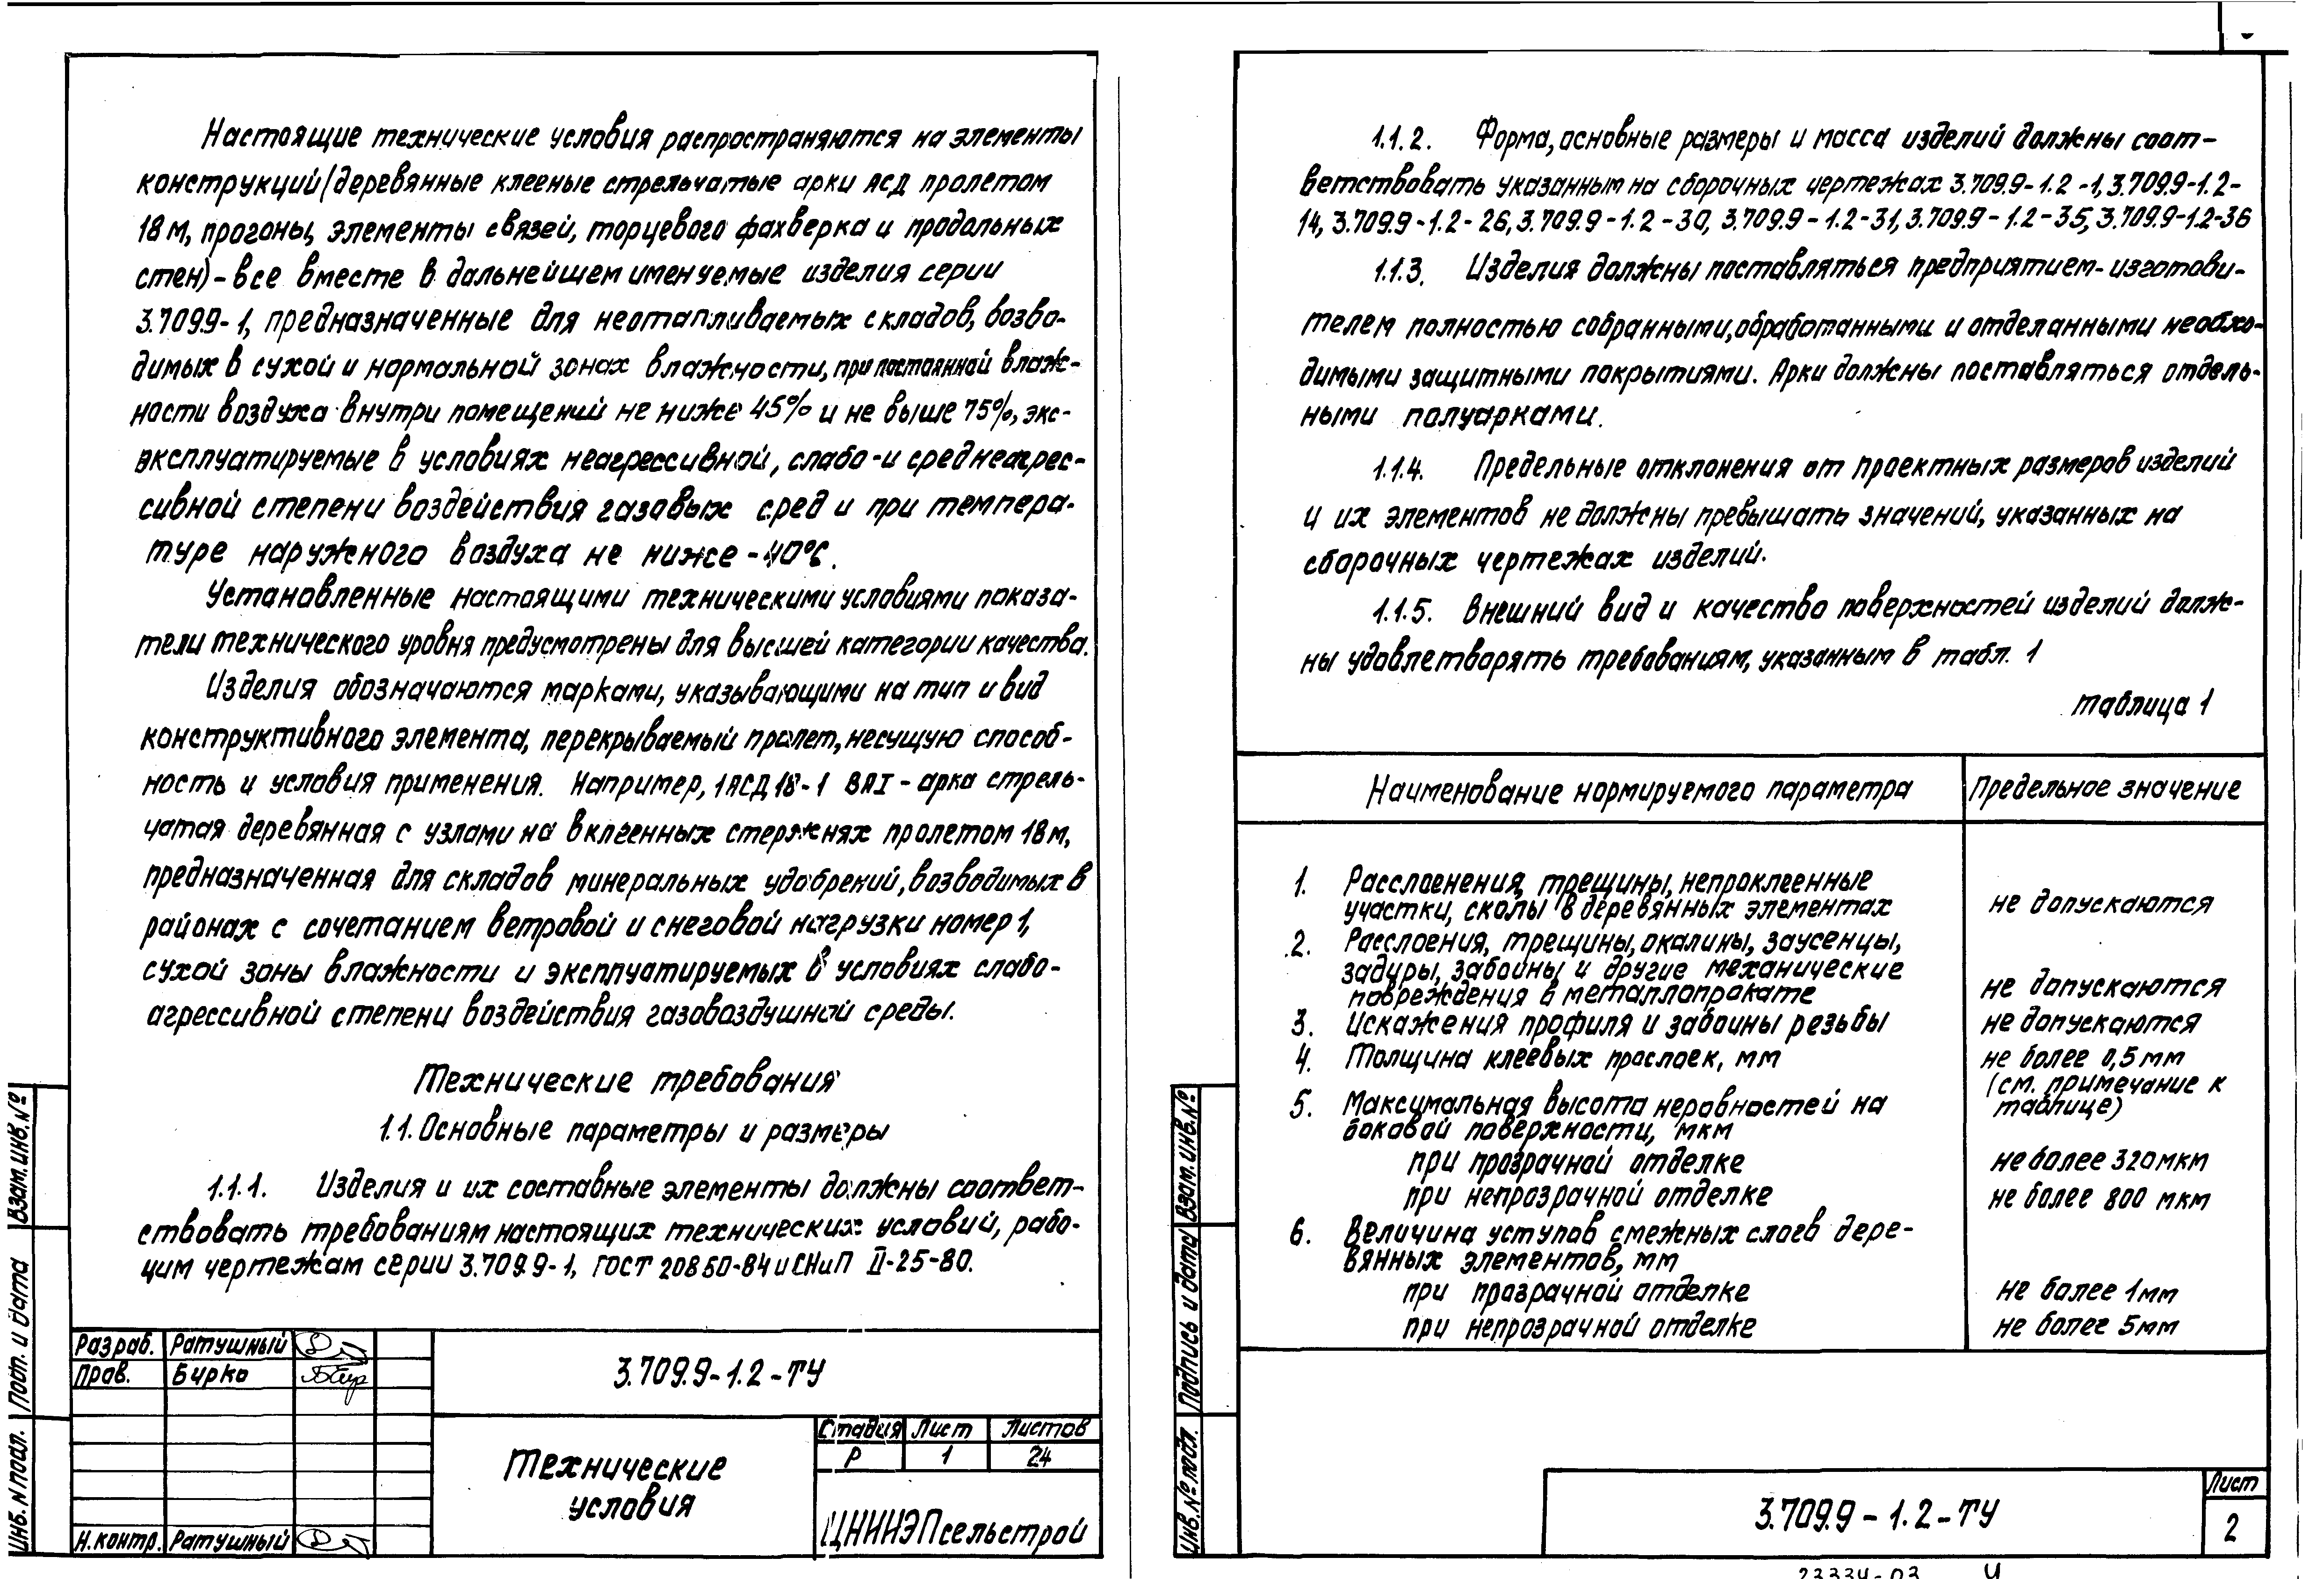 Настоящие технические условия распространяются на элементы
конструкций (деревянные клееные стрельчатые арки АСД пролетом
18 м, прогоны, элементы связей, торцевого фахверка и продольных
стен) - все вместе в дальнейшем именуемые изделия серии
3.709.9-1, предназначенные для неотапливаемых складов, возво-
димых в сухой и нормальной зонах влажности, при постоянной влаж-
ности воздуха внутри помещений не ниже 45% и не выше 75%, экс-
эксплуатируемые в условиях неагрессивной, слабо- и среднеагрес-
сивной степени воздействия газовых сред и при темпера-
туре наружного воздуха не ниже -40°С.
Установленные настоящими техническими условиями показа-
тели технического уровня предусмотрены для высшей категории качества.
Изделия обозначаются марками, указывающими на тип и вид
конструктивного элемента, перекрываемый пролет, несущую способ-
ность и условия применения. Например, 1АСД 18-1 ВАI - арка стрель-
чатая деревянная с узлами на вклеенных стержнях пролетом 18 м,
предназначенная для складов минеральных удобрений, возводимых в
районах с сочетанием ветровой и снеговой нагрузки номер 1,
сухой зоны влажности и эксплуатируемых в условиях слабо-
агрессивной степени воздействия газовоздушной среды.
Технические требования
1.1. Основные параметры и размеры
1.1.1. Изделия и их составные элементы должны соответ-
ствовать требованиям настоящих технических условий, рабо-
чим чертежам серии 3.709.9-1, ГОСТ 20850-84 и СНиП II-25-80.
Разраб. Ратушный
Пров. Бирко
Н.контр. Ратушный
3.709.9-1.2-ТУ
Технические
условия
Стадия Лист Листов
Р 1 24
ЦНИИЭПсельстрой
Взам.инв.№
Подп. и дата
Инв. N подл.
1.1.2. Форма, основные размеры и масса изделий должны соот-
ветствовать указанным на сборочных чертежах 3.709.9-1.2-1, 3.709.9-1.2-
14, 3.709.9-1.2-26, 3.709.9-1.2-30, 3.709.9-1.2-31, 3.709.9-1.2-35, 3.709.9-1.2-36
1.1.3. Изделия должны поставляться предприятием-изготови-
телем полностью собранными, обработанными и отделанными необхо-
димыми защитными покрытиями. Арки должны поставляться отдель-
ными полуарками.
1.1.4. Предельные отклонения от проектных размеров изделий
и их элементов не должны превышать значений, указанных на
сборочных чертежах изделий.
1.1.5. Внешний вид и качество поверхностей изделий долж-
ны удовлетворять требованиям, указанным в табл. 1
Таблица 1
Наименование нормируемого параметра Предельное значение
1. Расслоенения, трещины, непроклеенные
участки, сколы в деревянных элементах не допускаются
2. Расслоения, трещины, окалины, заусенцы,
задиры, забоины и другие механические
повреждения в металлопрокате не допускаются
3. Искажения профиля и забоины резьбы не допускаются
4. Толщина клеевых прослоек, мм не более 0,5 мм
(см. примечание к
таблице)
5. Максимальная высота неровностей на
боковой поверхности, мкм
при прозрачной отделке не более 320 мкм
при непрозрачной отделке не более 800 мкм
6. Величина уступов смежных слоев дере-
вянных элементов, мм
при прозрачной отделке не более 1 мм
при непрозрачной отделке не более 5 мм
Взам.инв.№
Подпись и дата
Инв.№ подл.
3.709.9-1.2-ТУ
Лист
2
23334-03 4